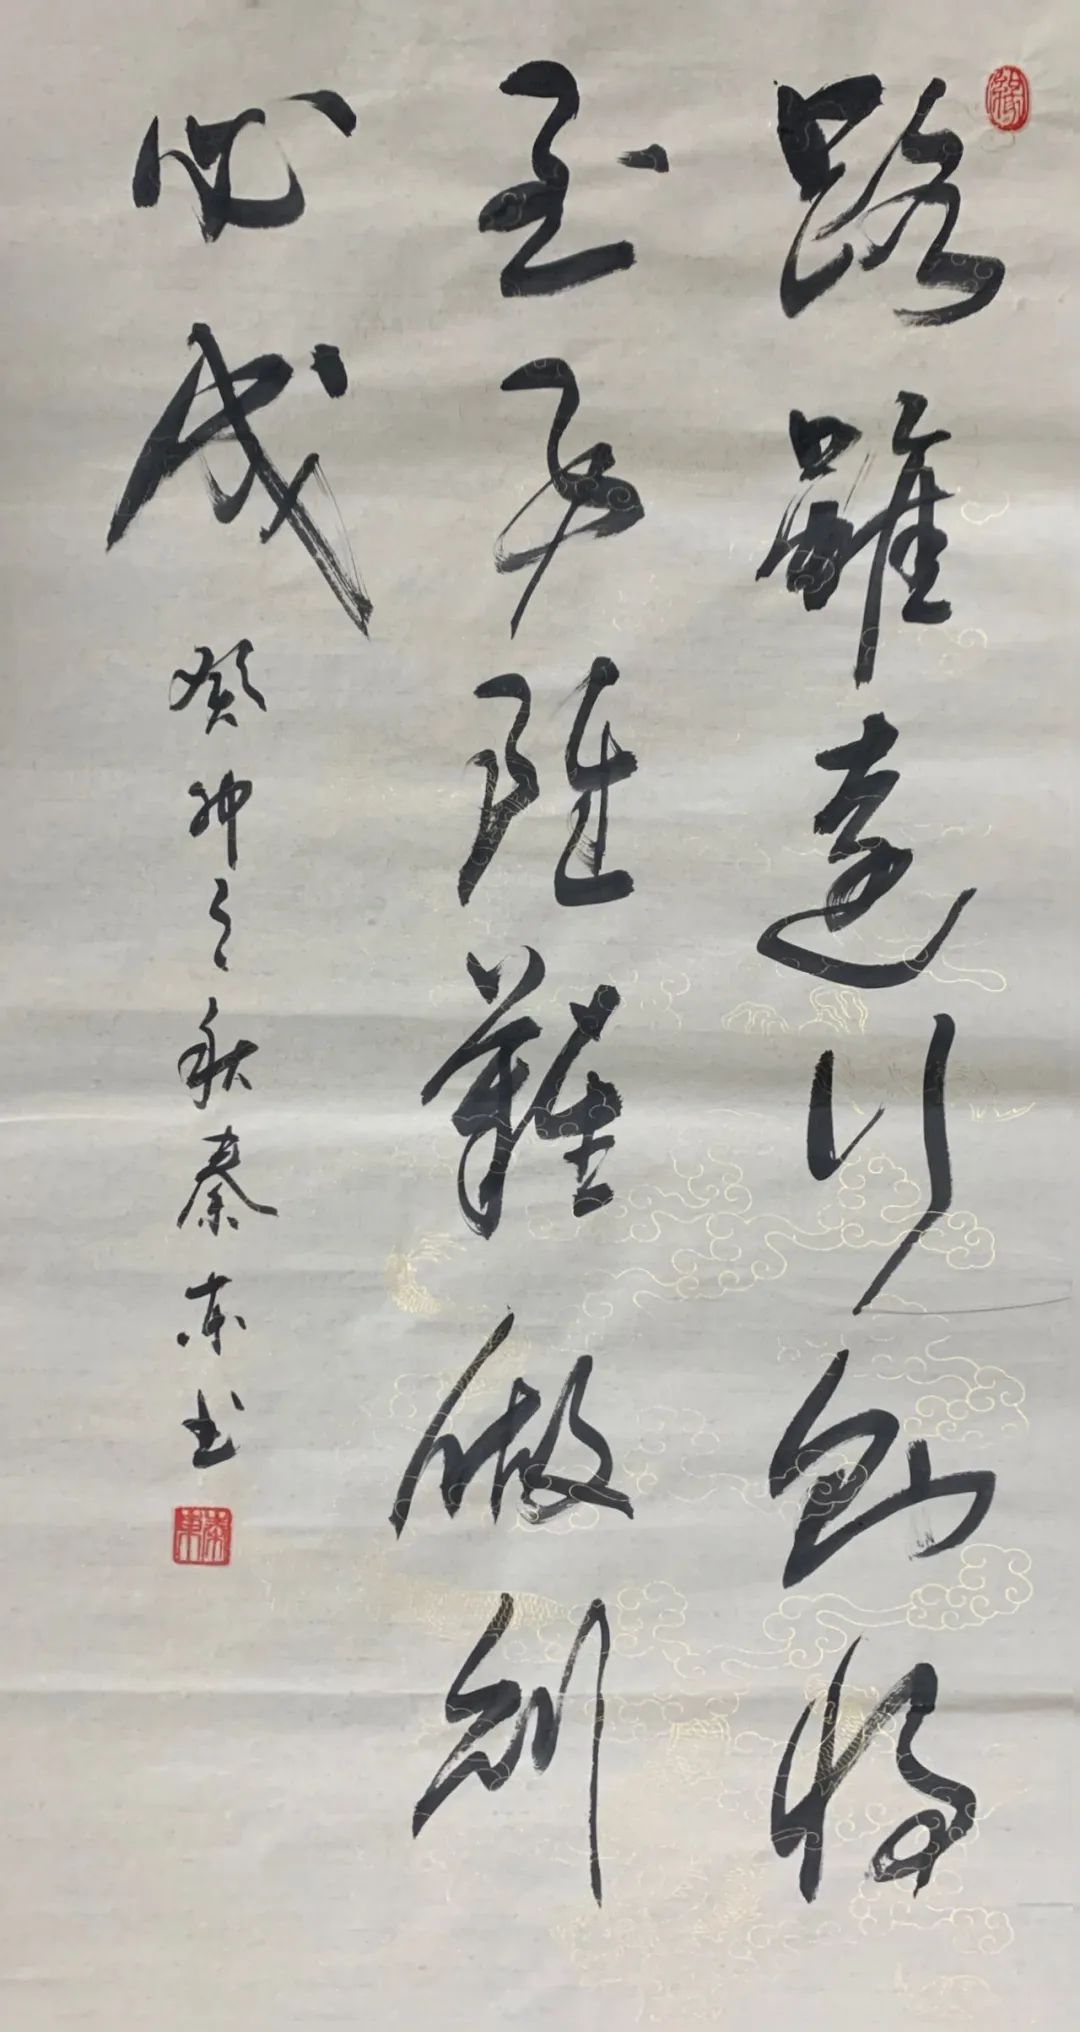 路雖遠行則將
至事雖難做則
必成
癸卯之秋秦東書
秦東